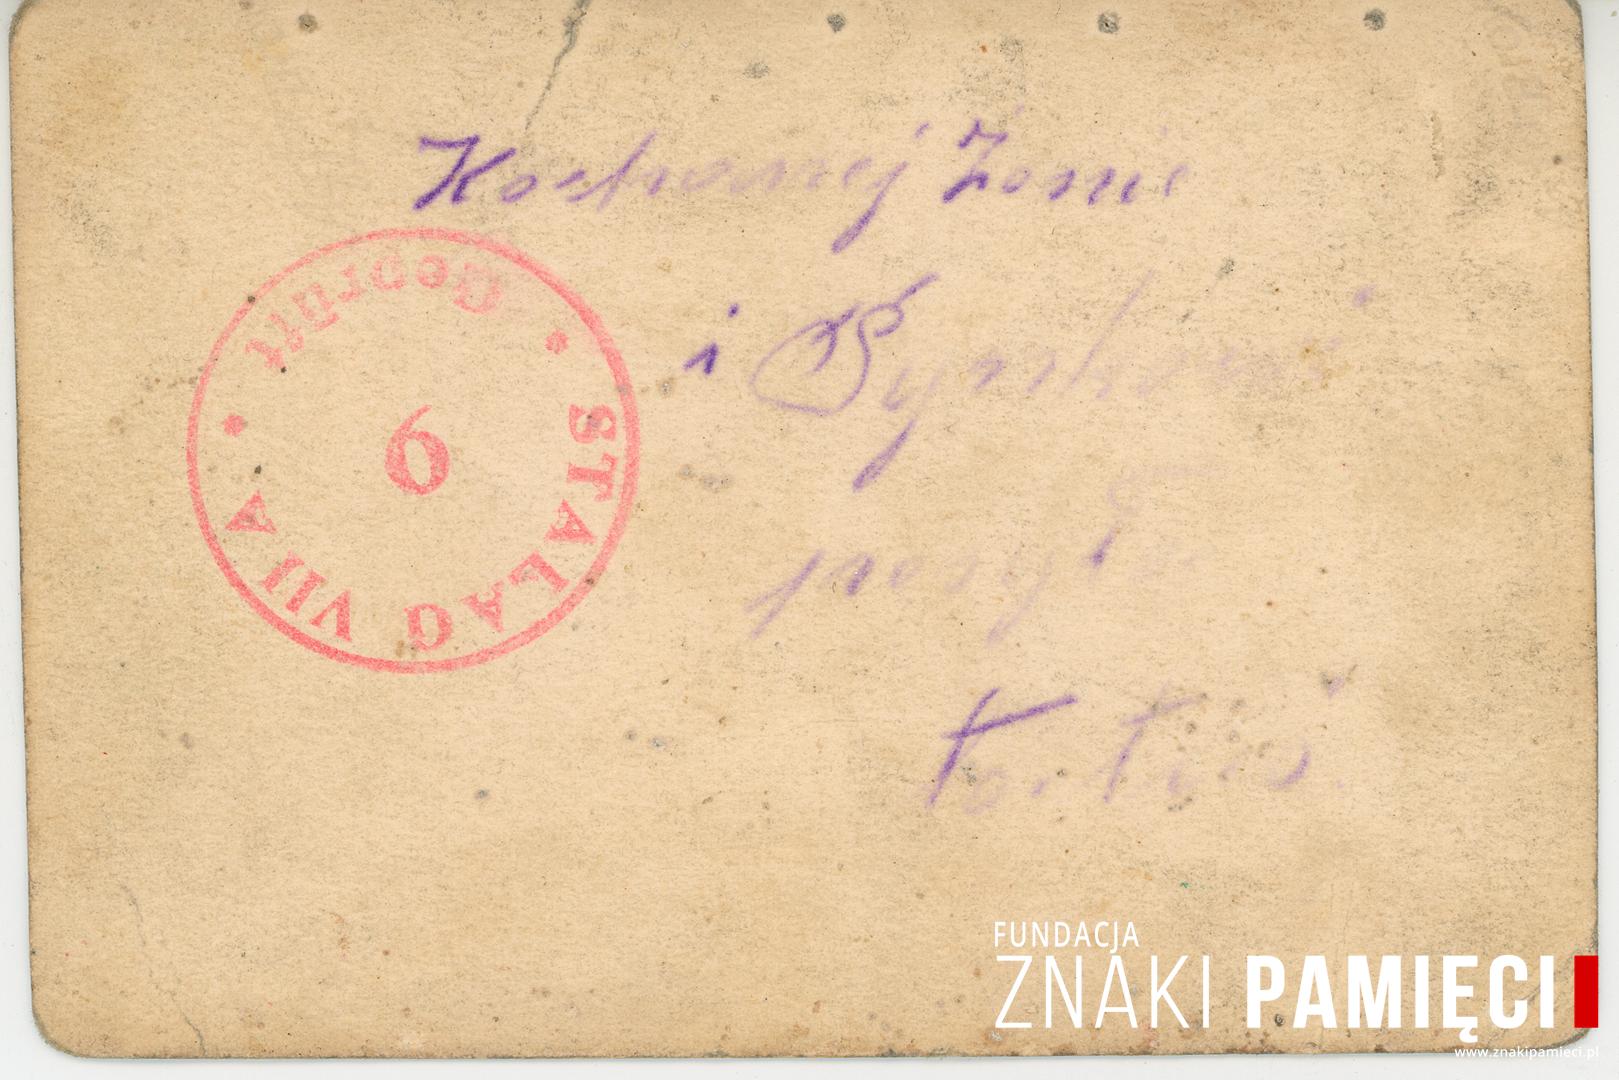 Kochanej Żonie
i Synkowi
Geprüft
6
STALAG VII A
FUNDACJA
ZNAKI PAMIĘCI
www.znakipamieci.pl